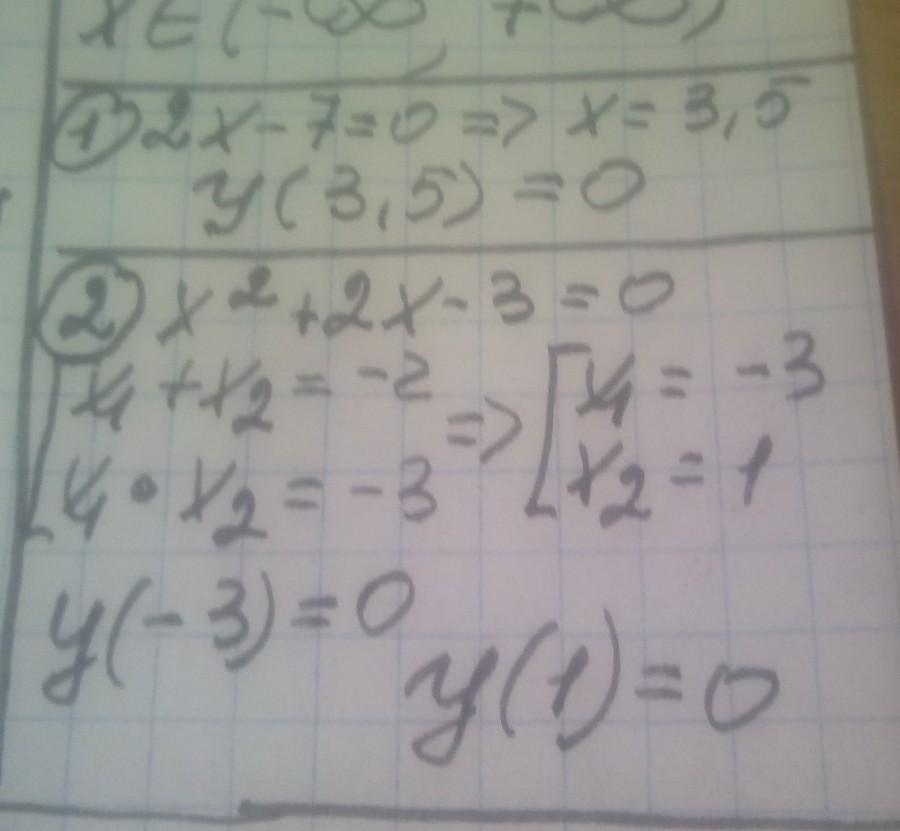 x ∈ (-∞, +∞)
① 2x - 7 = 0 => x = 3,5
y(3,5) = 0
② x² + 2x - 3 = 0
[x₁ + x₂ = -2
x₁ • x₂ = -3
=> [x₁ = -3
x₂ = 1
y(-3) = 0
y(1) = 0